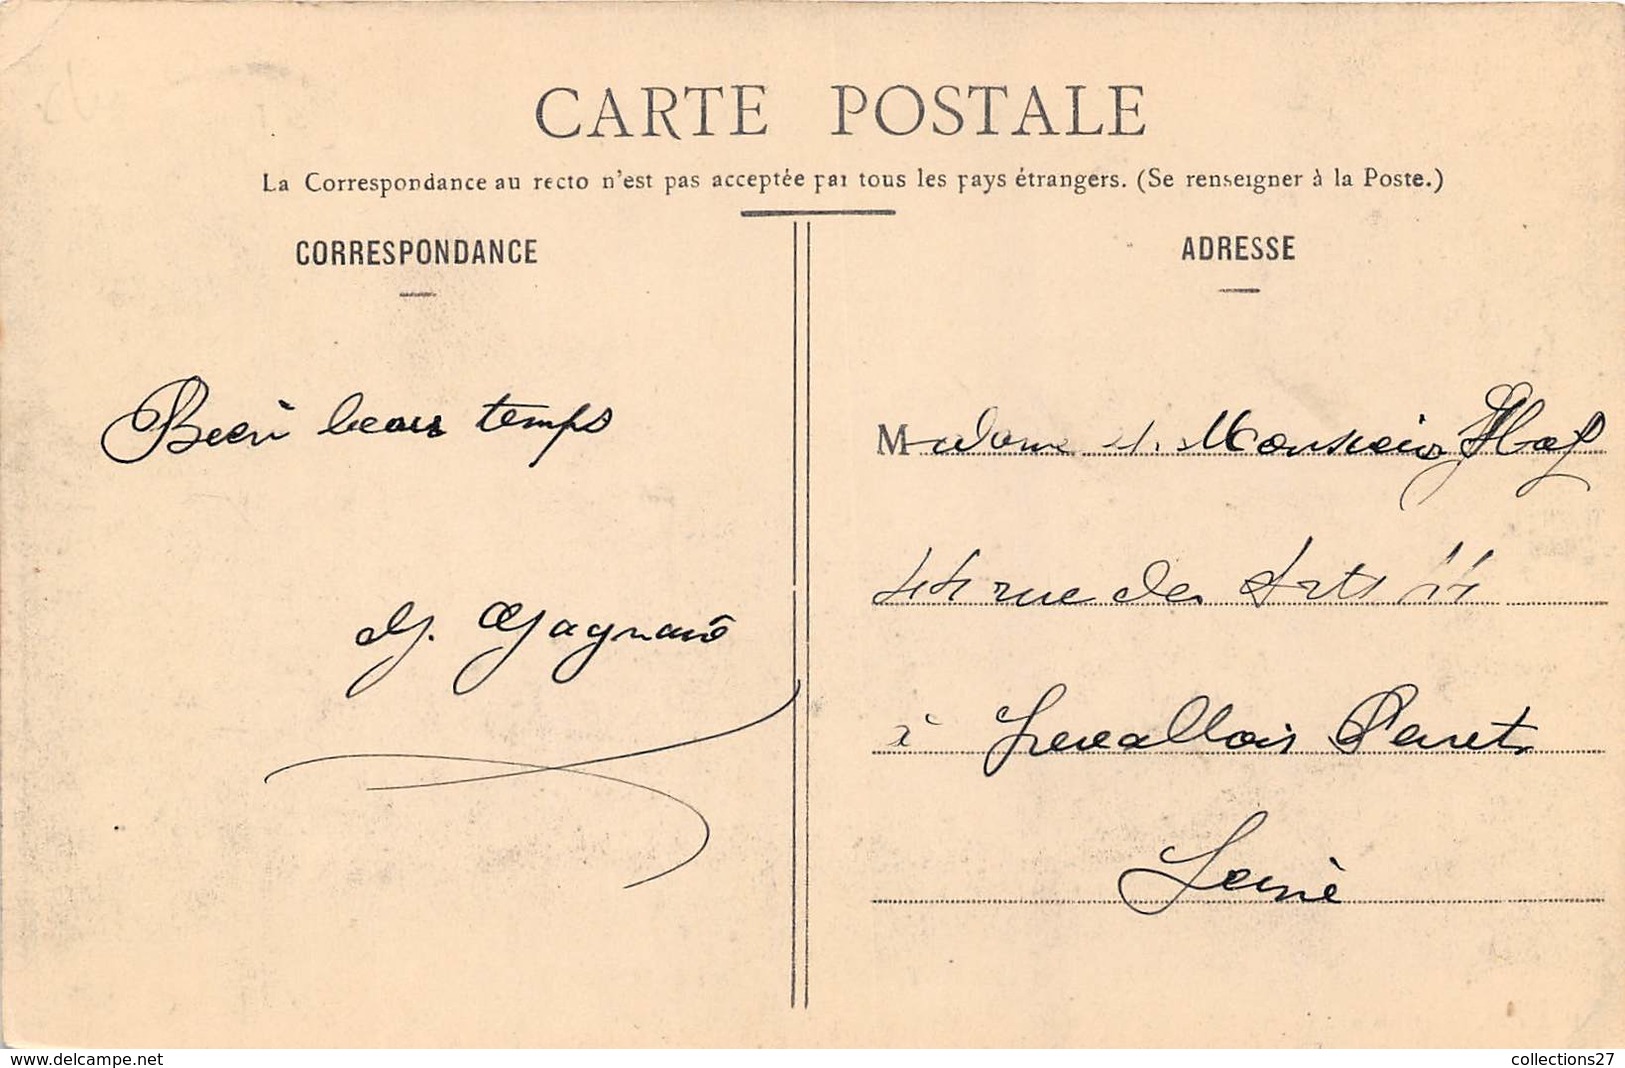 CARTE POSTALE
La Correspondance au recto n'est pas acceptée par tous les pays étrangers. (Se renseigner à la Poste.)
CORRESPONDANCE
Bien beau temps
ADRESSE
Madame et Monsieur
44 rue des Arts 44
à Levallois Perret
Seine
www.delcampe.net
collections27